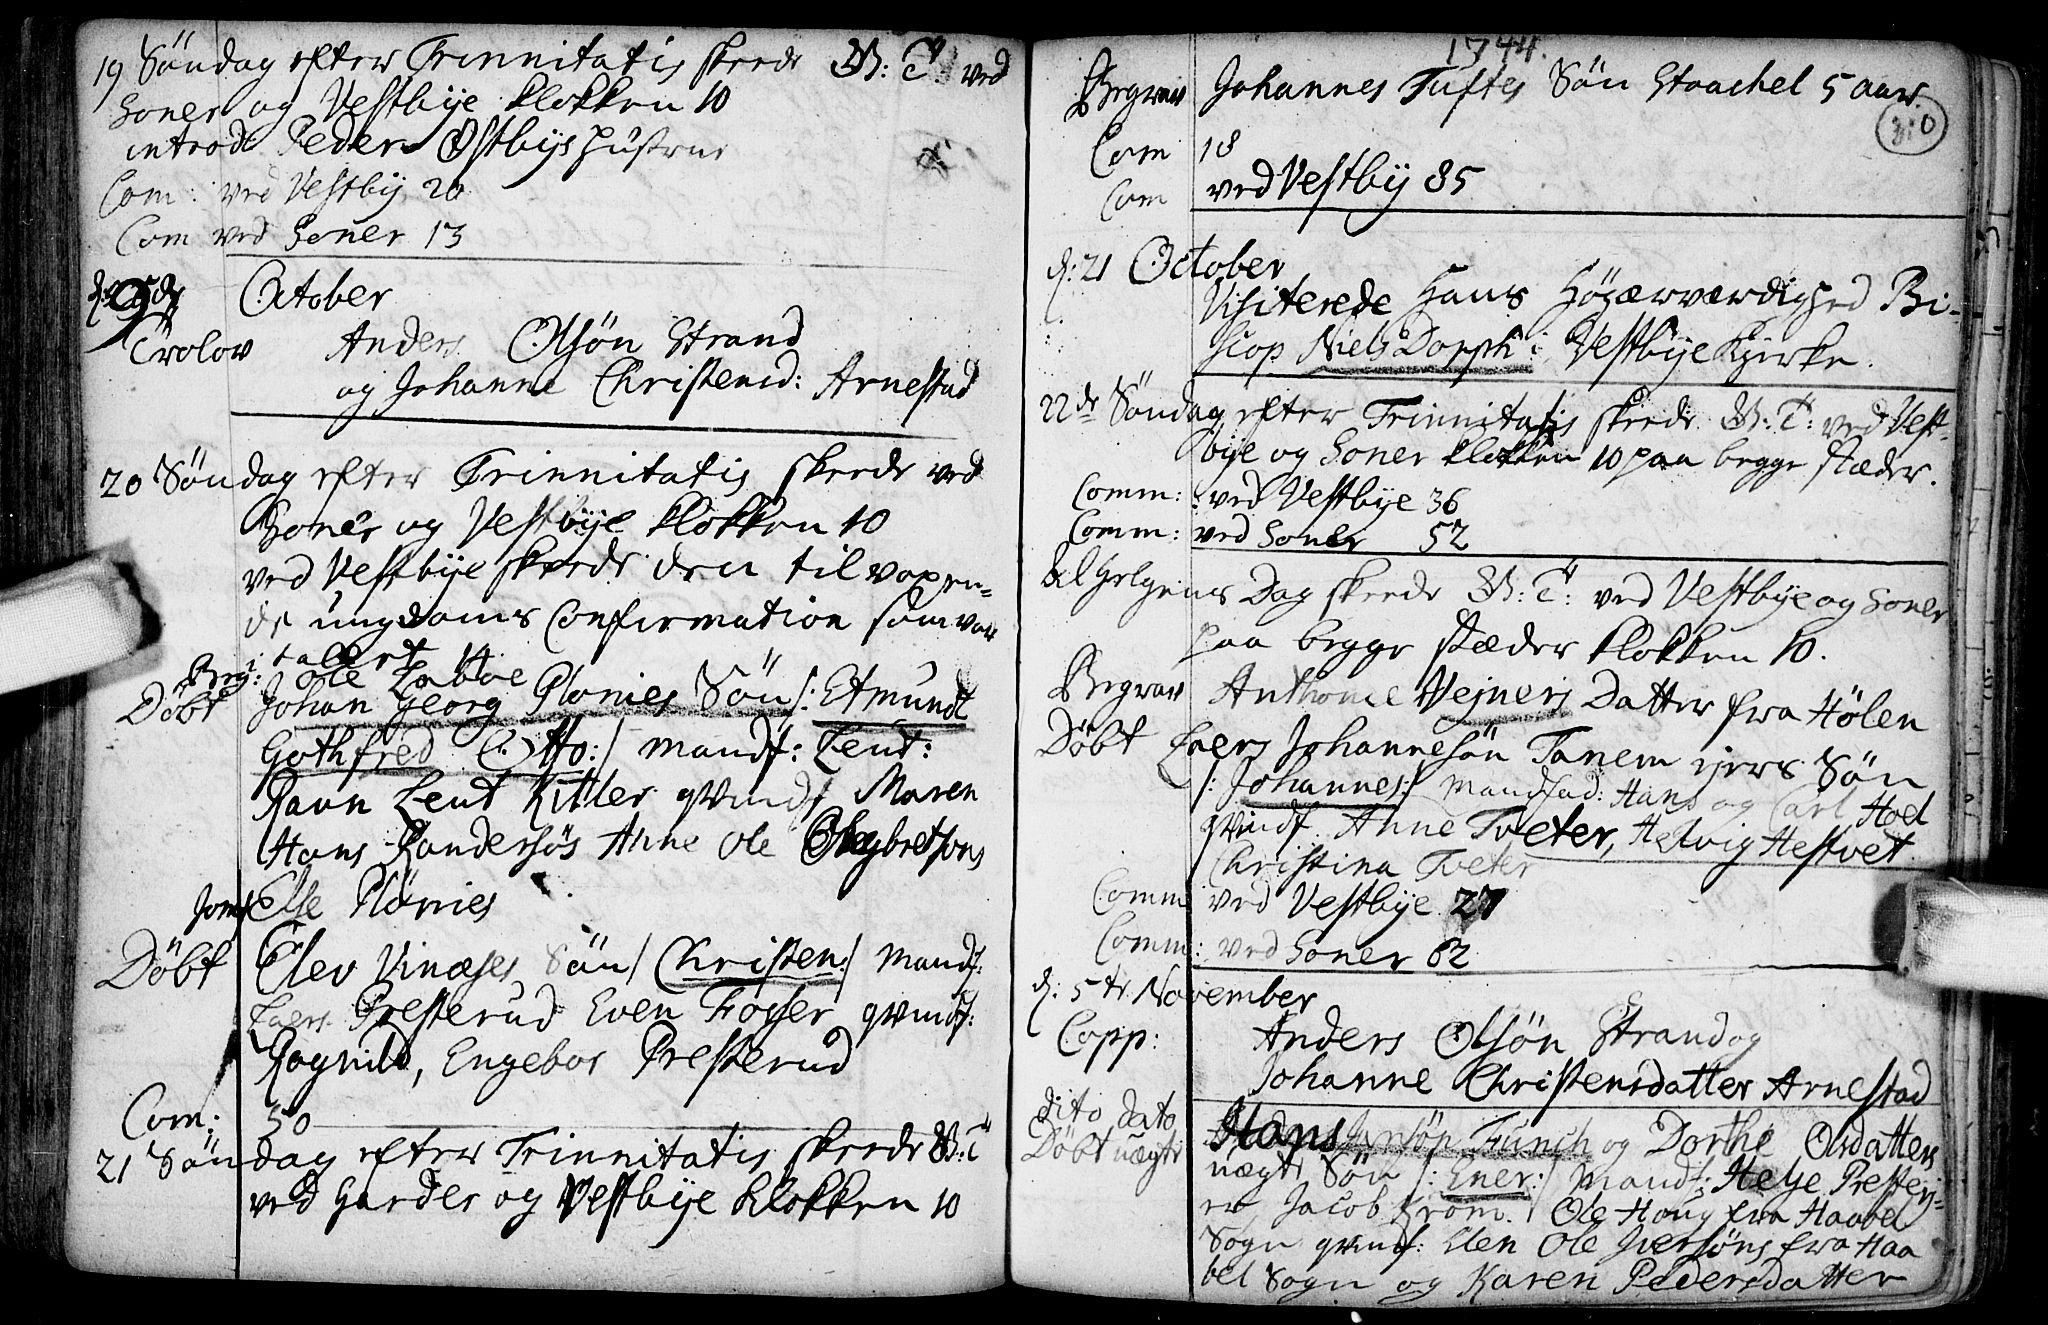 19 Söndag efter Trinnitatis skrede G: T. ved
Soner og Vestbye klokken 10
introd: Peder Östbys Hustrue
Com: ved Vestby 20
Com ved Soner 13
October
Trolov Anders Olsön Strand
og Johanne Christensd: Arnestad
20 Söndag efter Trinnitatis skeede ved
Soner og Vestbye klokken 10
ved Vestbye skeede den til voxen-
de ungdoms Confirmation som var
i talent 14
Beg: Ole Labboe
Döbt Johan Georg Plonies Sön /: Etmundt
Gothfred Otto:/ mandf: Leut:
Ravn Leut Kitler qvindf Maren
Hans Randersös Anne Ole Engbretsöns
Jomf Else Plönies
Döbt Elev Vinæses Sön / Christen:/ mandf:
Laers Presterud Even Fosser qvindf:
Rognild, Engebor Presterud
Com: 50
21 Söndag efter Trinnitatis skeede G: T
ved Garder og Vestbye klokken 10
1744.
310
Begrav Johannes Tuftes Sön Staachel 5 aar.
Com 18
Com ved Vestby 85
d: 21 October
Visiterede Hans Höyærværdighed Bi-
scop Niels Dorph i Vestbye Kjrke.
22de Söndag efter Trinnitatis skeede G: T: ved Vest-
bye og Soner klokken 10 paa begge stæder.
Comm: ved Vestbye 36
Comm: ved Soner 52
Al Helgens Dag skeede G: T: ved Vestbye og Soner
paa begge stæder klokken 10.
Begrav Anthonie Vejners Datter fra Hölen
Döbt Laers Johannesön Tanem ejers Sön
/: Johannes:/ mandfad: Hans og Carl Hoel
qvindf. Anne Tveter, Helvig Hestvet
Christina Tveter
Comm ved Vestbye 27
Comm: ved Soner 82
d: 5te November
Copp: Anders Olsön Strand og
Johanne Christensdatter Arnestad
dito dato
Döbt uægte Hans Jensön Funch og Dorthe Olsdatters
uægte Sön /: Ener:/ mandf: Helje Prester-
er Jacob Krom. Ole Haug fra Haabel
Sogn qvindf: Elen Ole Iversöns fra Haa
bel Sogn og Karen Pedersdatter